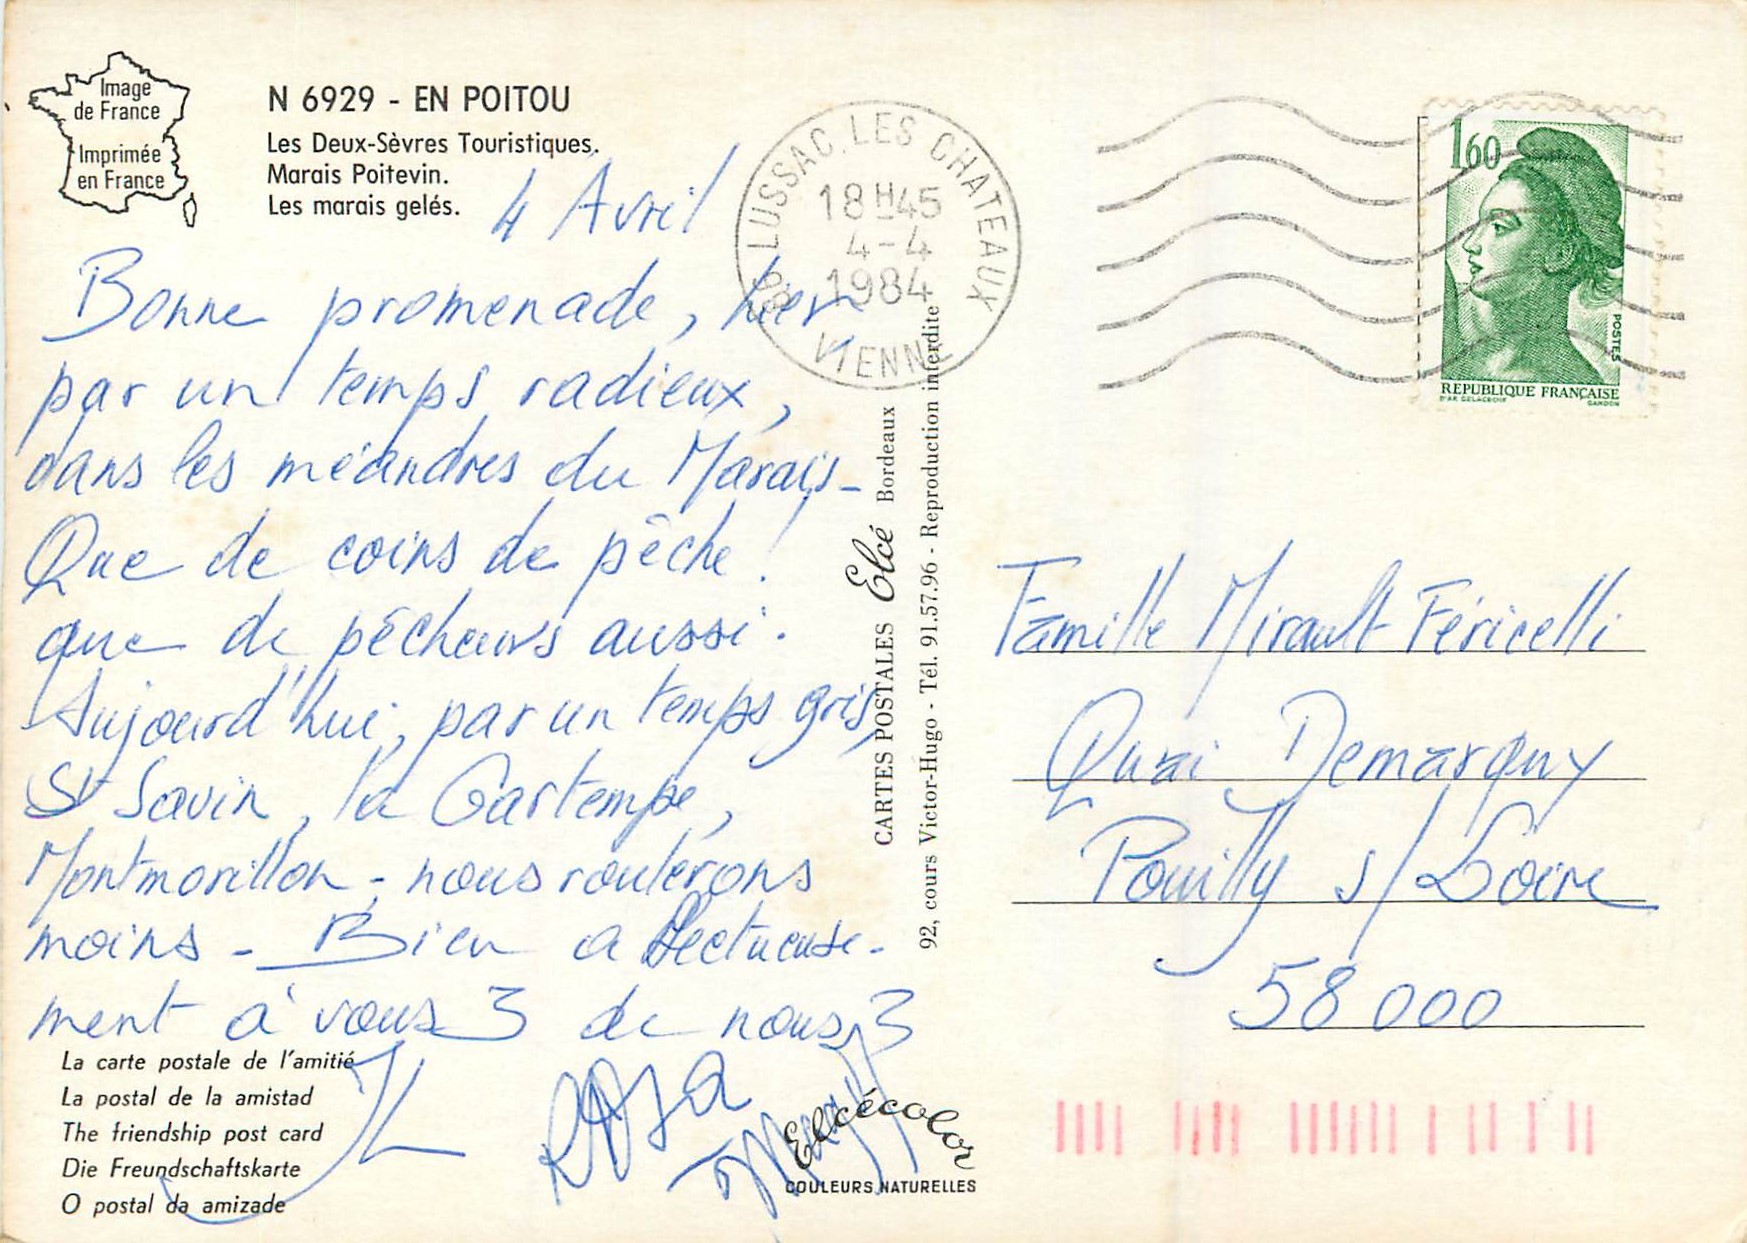 Image
de France
Imprimée
en France
N 6929 - EN POITOU
Les Deux-Sèvres Touristiques.
Marais Poitevin.
Les marais gelés.
4 Avril
Bonne promenade, hier
par un temps radieux,
dans les méandres du Marais -
Que de coins de pêche !
que de pêcheurs aussi.
Aujourd'hui, par un temps gris,
St Savin, la Gartempe,
Montmorillon - nous roulerons
moins - Bien affectueuse-
ment à vous 3 de nous 3
JL
Rosa
La carte postale de l'amitié
La postal de la amistad
The friendship post card
Die Freundschaftskarte
O postal da amizade
86 LUSSAC. LES CHATEAUX
18 H 45
4-4
1984
VIENNE
CARTES POSTALES Elcé Bordeaux
92, cours Victor-Hugo - Tél. 91.57.96 - Reproduction interdite
Elcécolor
COULEURS NATURELLES
1,60
POSTES
REPUBLIQUE FRANÇAISE
D'AP. DELACROIX GANDON
Famille Mirault-Féricelli
Quai Demarquy
Pouilly s/Loire
58000